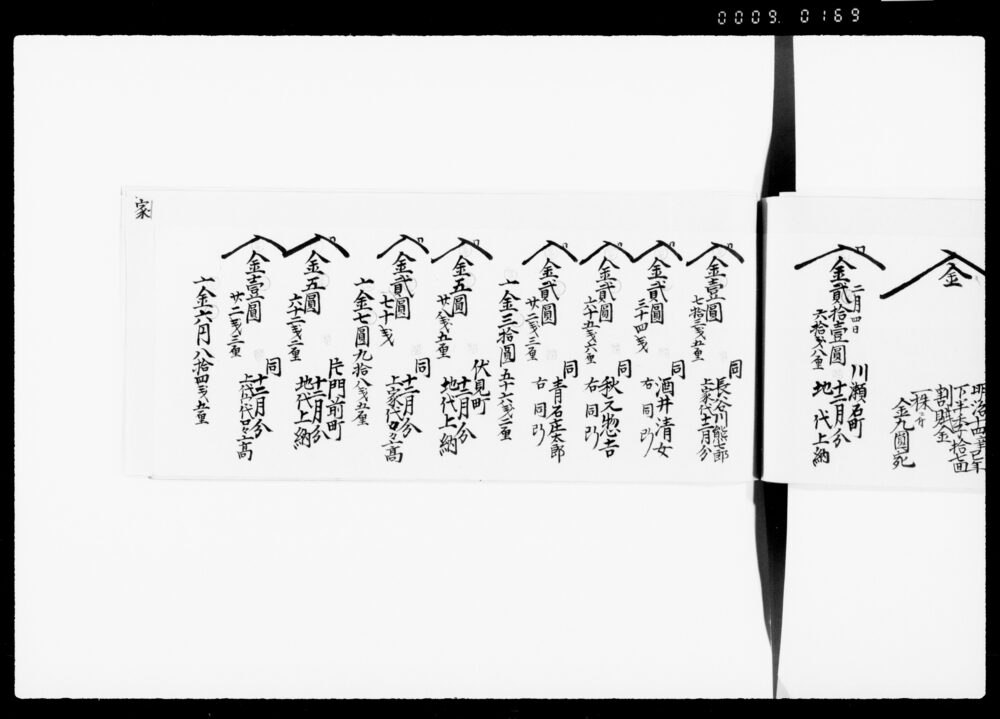 0009. 0169
明治十四年
下半季拾壱
割賦金
一株ニ付
金九圓宛
金
二月四日
金貳拾壹圓
六拾銭八厘
川瀬石町
十二月分
地代上納
同
金壹圓
七拾三銭五厘
長谷川熊二郎
上家代十二月分
同
金貳圓
三十四銭
酒井清女
右同断
同
金貳圓
六十五銭六厘
秋元惣吉
右同断
同
金貳圓
廿二銭三厘
青石庄太郎
右同断
一金三拾圓五十六銭二厘
金五圓
廿八銭五厘
伏見町
十二月分
地代上納
金貳圓
七十銭
同
十二月分
上家代口々上高
一金七圓九拾八銭五厘
金五圓
六十二銭二厘
片門前町
十二月分
地代上納
金壹圓
廿二銭三厘
同
十二月分
上家代口々高
一金六円八拾四銭五厘
家